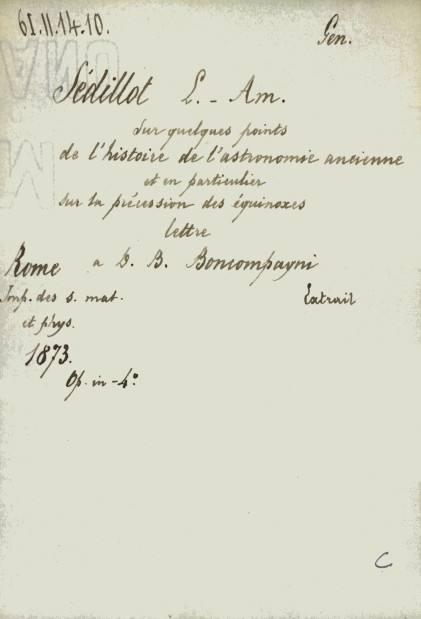 61.II.14.10.
Gén.
Sédillot L. - Am.
sur quelques points
de l'histoire de l'astronomie ancienne
et en particulier
sur la précession des équinoxes
lettre
Rome a D. B. Boncompagni
Imp. des s. mat. Extrait
et phys.
1873.
Op. in - 4°
C